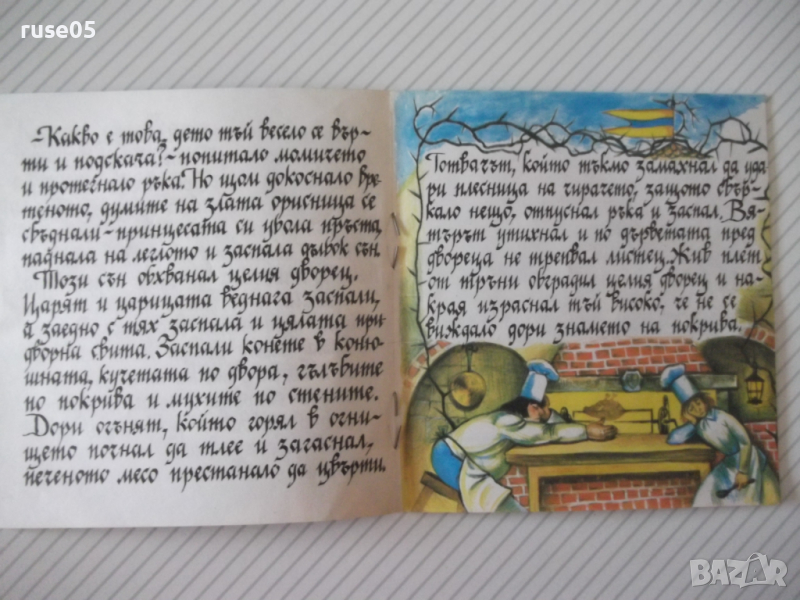 ruse05
-Какво е това, дето тъй весело се вър-
ти и подскача?- попитало момичето
и протегнало ръка. Но щом докоснало вре-
теното, думите на злата орисница се
сбъднали - принцесата си убола пръста,
паднала на леглото и заспала дълбок сън.
Този сън обхванал целия дворец.
Царят и царицата веднага заспали,
а заедно с тях заспала и цялата при-
дворна свита. Заспали конете в коню-
шната, кучетата по двора, гълъбите
по покрива и мухите по стените.
Дори огънят, който горял в огни-
щето почнал да тлее и загаснал,
печеното месо престанало да цвърти.
Готвачът, който тъкмо замахнал да уда-
ри плесница на чирачето, защото свър-
кало нещо, отпуснал ръка и заспал. Вя-
търът утихнал и по дърветата пред
двореца не трепвал листец. Жив плет
от тръни оградил целия дворец и на-
края израснал тъй високо, че не се
виждало дори знамето на покрива.
BAZAR